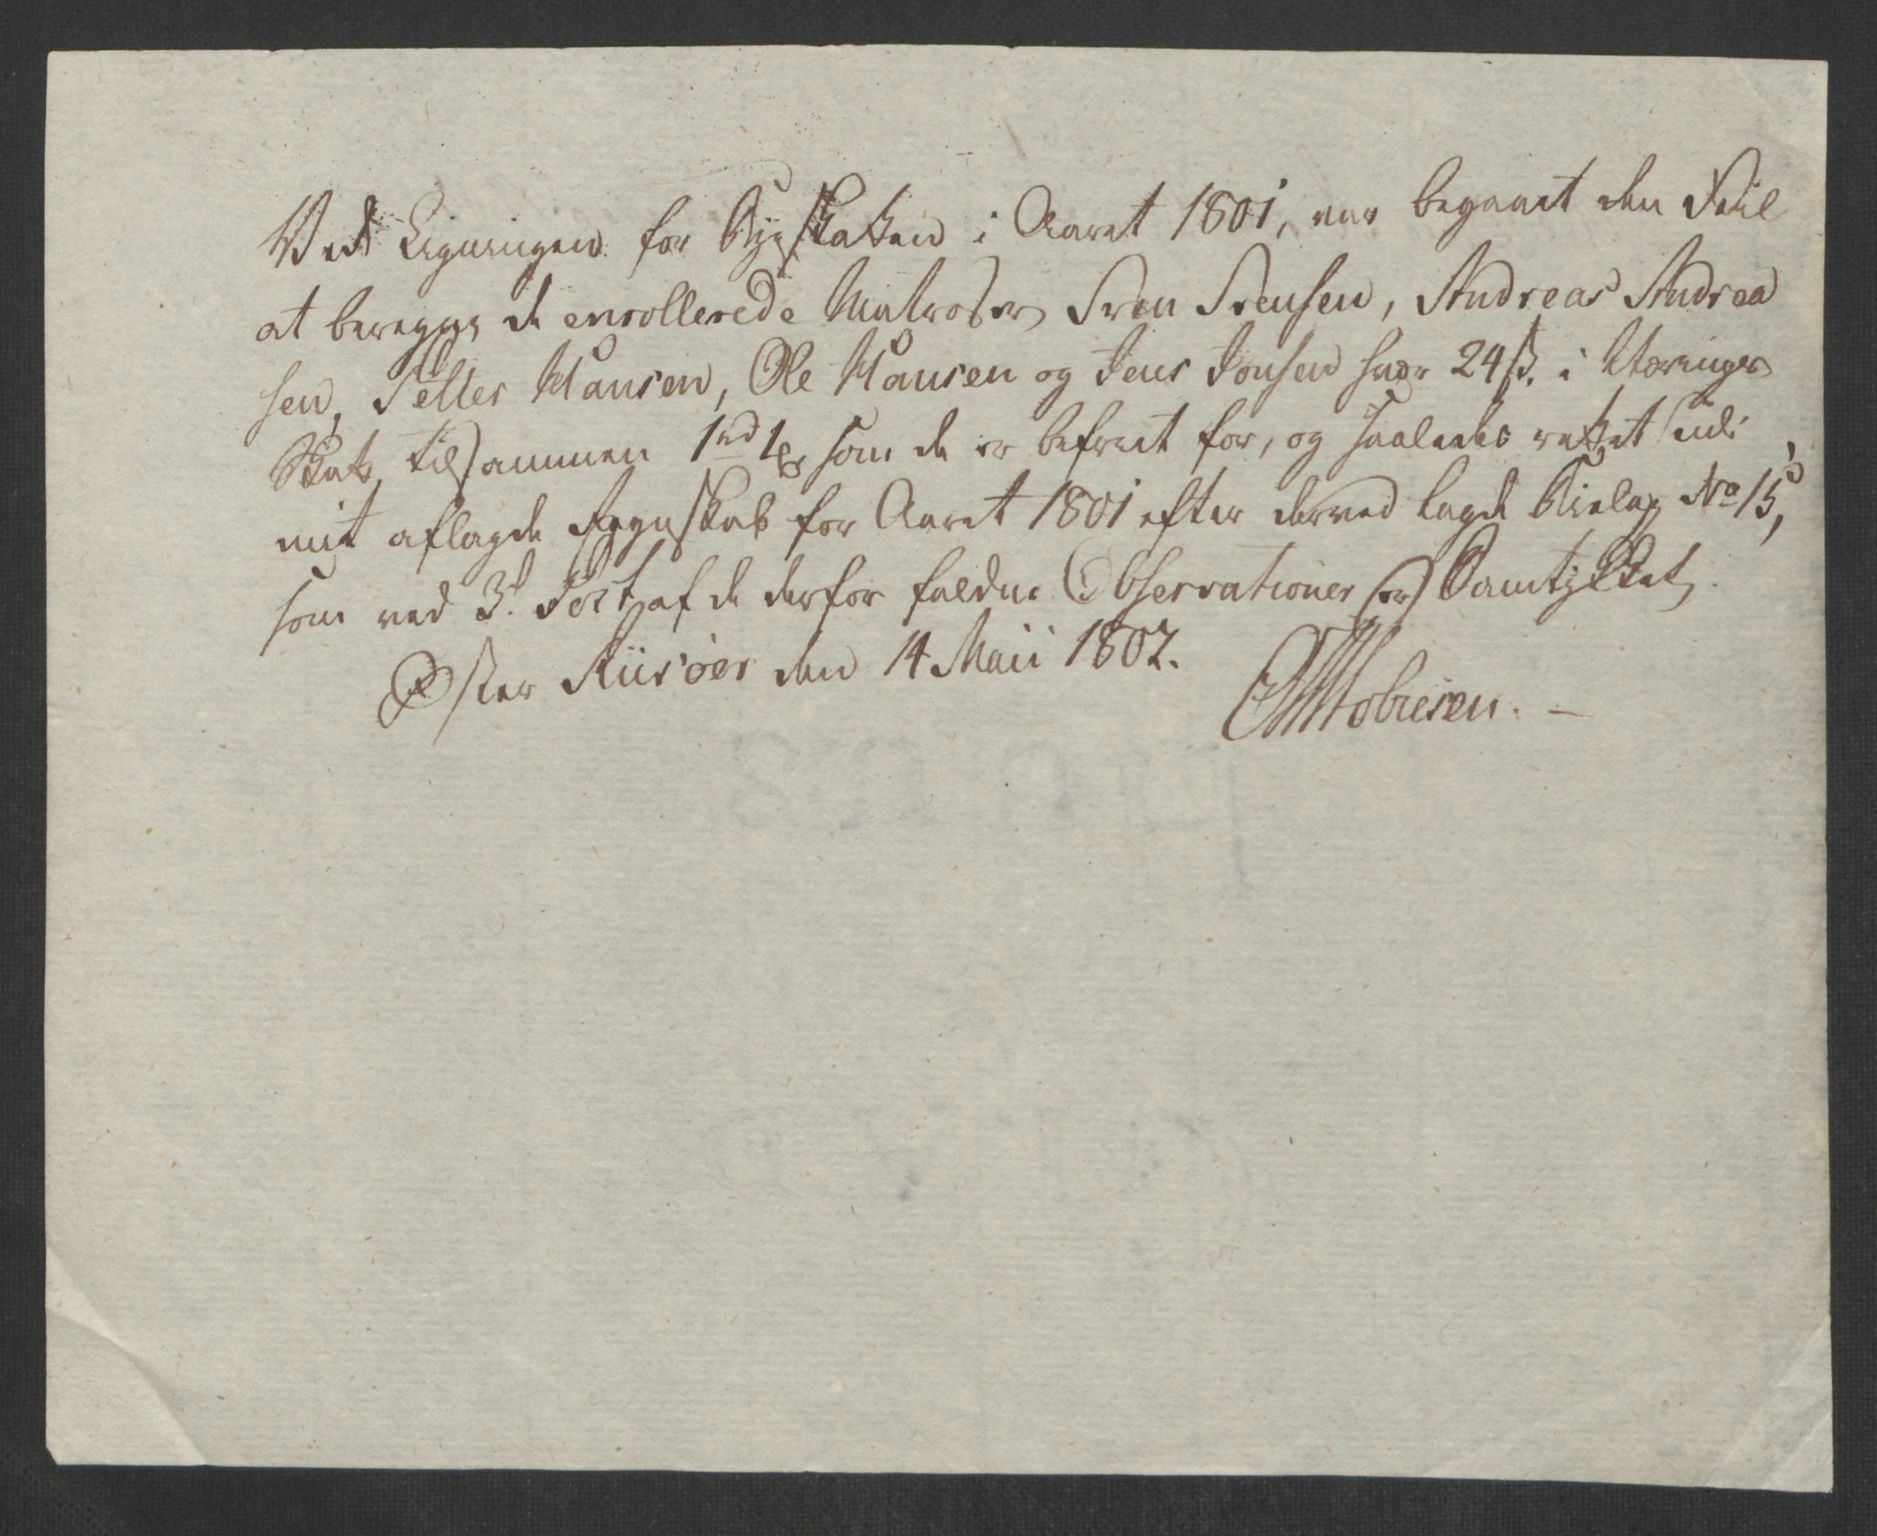 Ved Ligningen for Byskatten i Aaret 1801, var begaaet den Feil
at beregne de enrollerede Matroser Sven Svensen, Andreas Andrea
sen, Peller Hansen, Ole Hansen og Jens Jonsen hver 24 ß. i Nærings
Skat, tilsammen 1 rd 1 som de er befriet for, og saaledes rettet udi
mit aflagde Regnskab for Aaret 1801 efter derved lagde Bielag No 15,
som ved 3d. Post af de derfor faldne Observationer er Samtykket.
Øster Riisøer den 14 Maii 1802.
Tobiesen. –